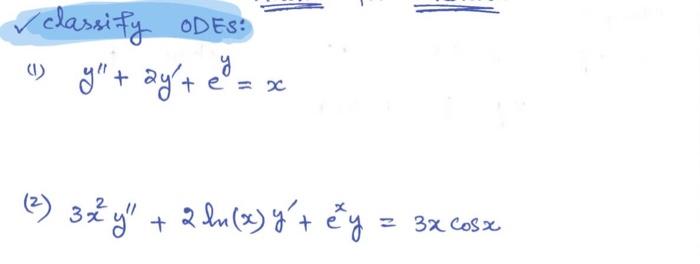 ✓ classify ODEs:
(1) y'' + 2y' + e^y = x
(2) 3x^2 y'' + 2 ln(x) y' + e^x y = 3x cosx